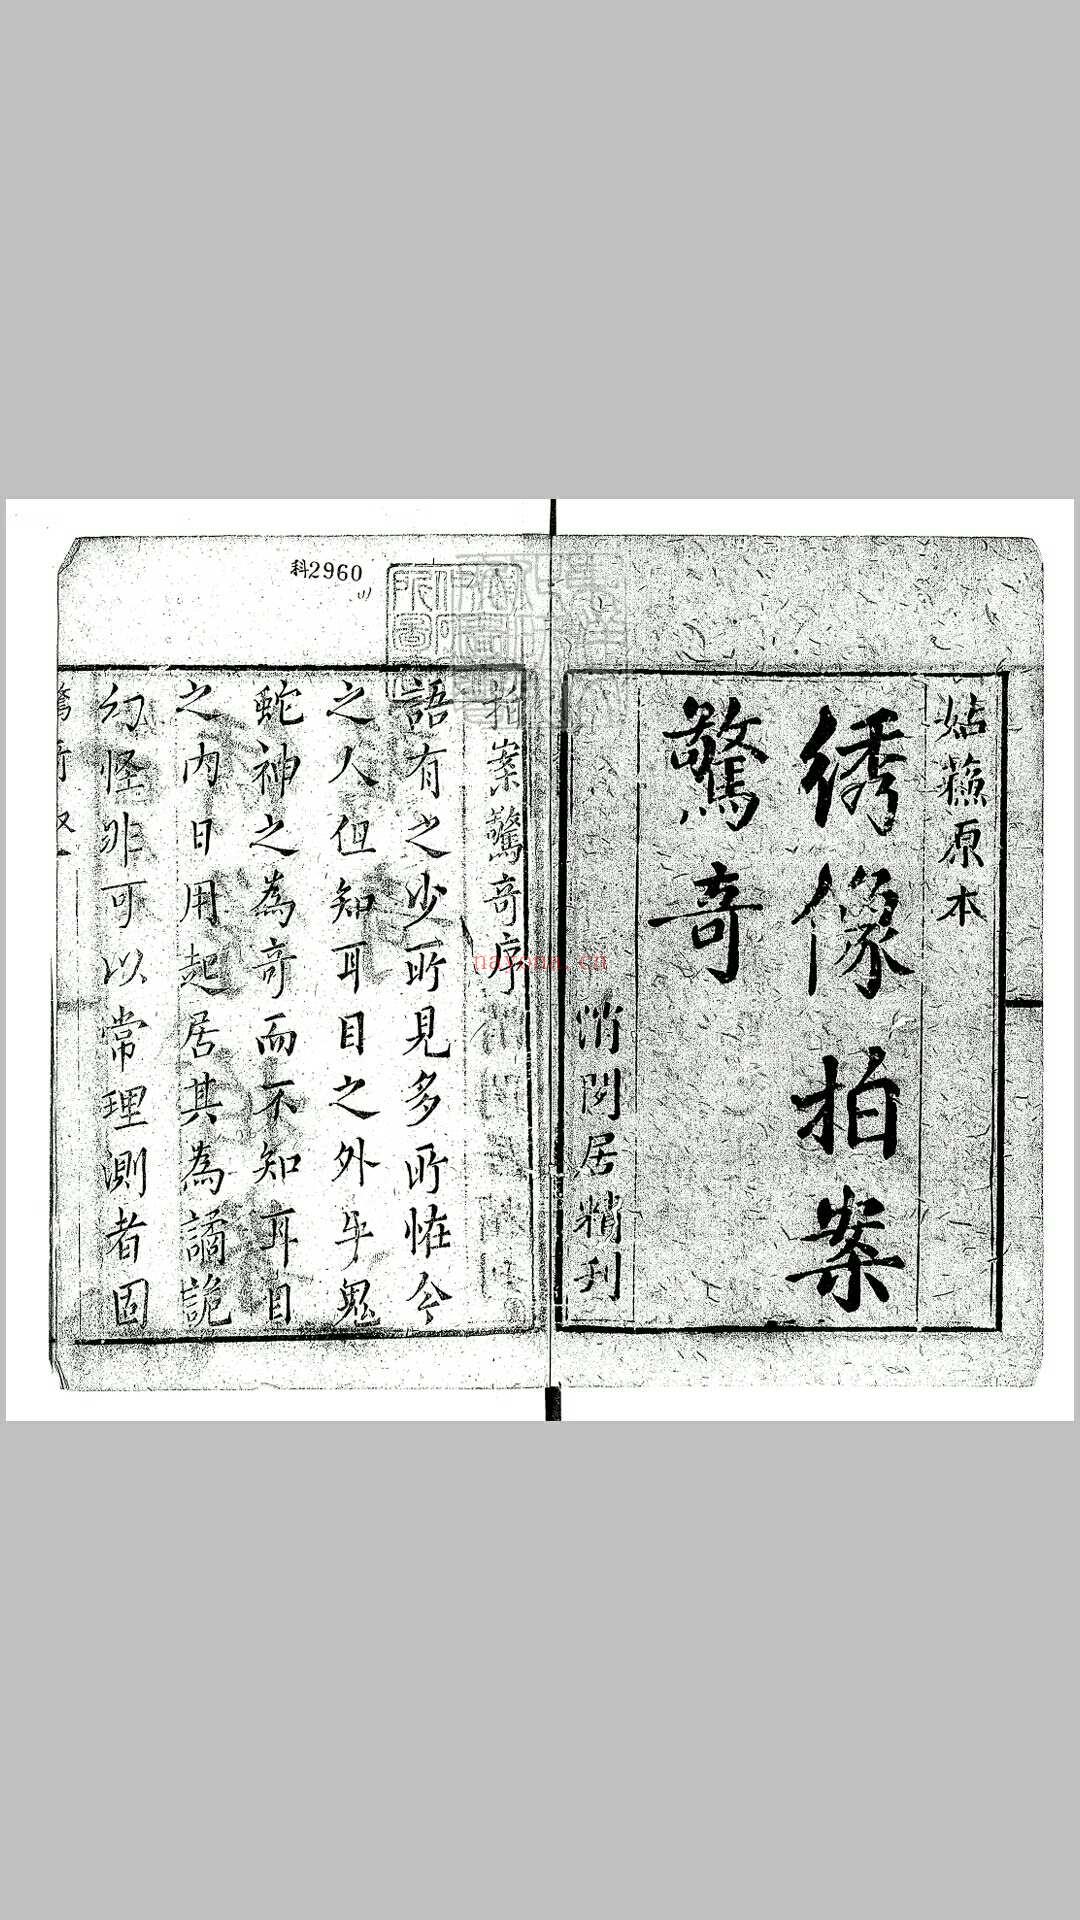 姑蘓原本
綉像拍案
驚奇
消閒居精刋
科2960
拍案驚奇序
語有之少所見多所恠今
之人但知耳目之外牛鬼
蛇神之為奇而不知耳目
之内日用起居其為譎詭
幻怪非可以常理測者固
nayona.cn